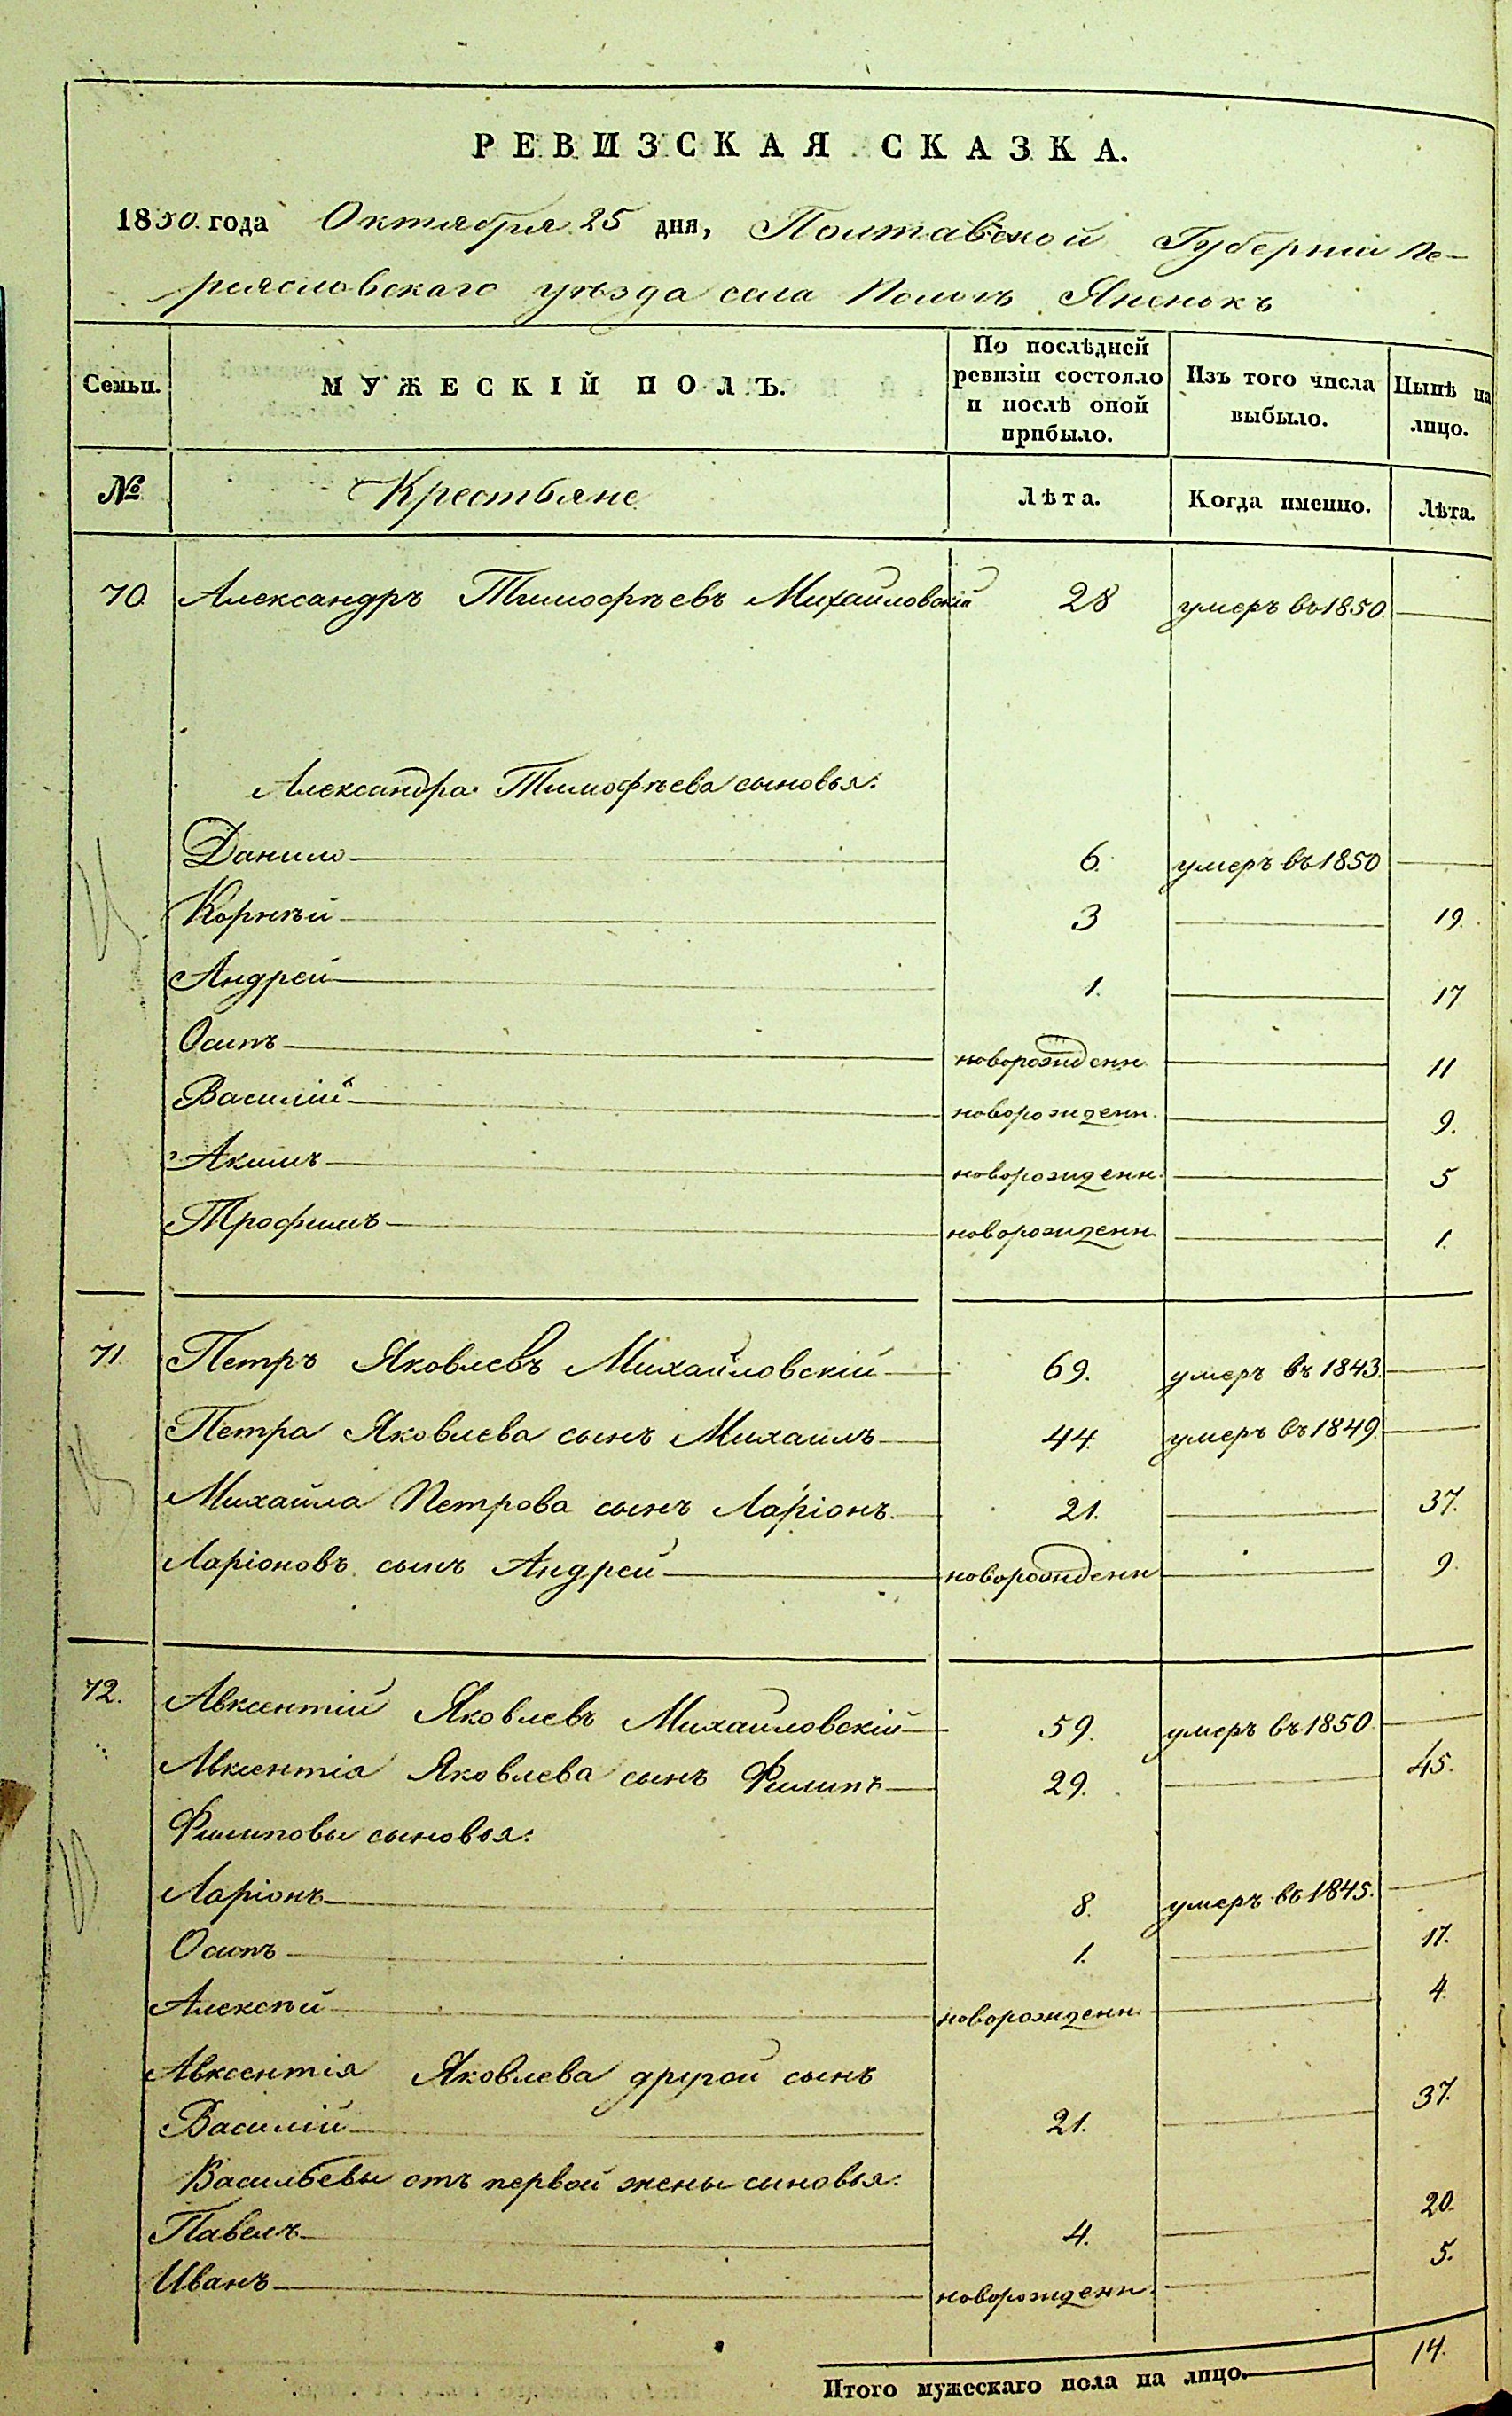 РЕВИЗСКАЯ СКАЗКА.
1850. года Октября 25 дня, Полтавской Губерніи Пе-
реясловскаго уѣзда села Пологъ Яненокъ
Семьи.
МУЖЕСКІЙ ПОЛЪ.
По послѣдней ревизіи состояло и послѣ оной прибыло.
Изъ того числа выбыло.
Нынѣ на лицо.
№ Крестьяне Лѣта. Когда именно. Лѣта.
70. Александръ Тимофѣевъ Михайловскій 28 умеръ въ 1850.
Александра Тимофѣева сыновья:
Данило 6. умеръ въ 1850
Корнѣй 3 19.
Андрей 1. 17
Осипъ новорожденн 11
Василій новорожденн. 9.
Акимъ новорожденн. 5
Трофимъ новорожденн. 1.
71. Петръ Яковлевъ Михайловскій 69. умеръ въ 1843.
Петра Яковлева сынъ Михаилъ 44. умеръ въ 1849.
Михайла Петрова сынъ Ларіонъ 21. 37.
Ларіоновъ сынъ Андрей новорожденн 9.
72. Авксентій Яковлевъ Михайловскій 59. умеръ въ 1850.
Авксентія Яковлева сынъ Филипъ 29. 45.
Филиповы сыновья:
Ларіонъ 8. умеръ въ 1845.
Осипъ 1. 17.
Алексѣй новорожденн. 4.
Авксентія Яковлева другой сынъ
Василій 21. 37.
Васильевы отъ первой жены сыновья:
Павелъ 4. 20.
Иванъ новорожденн. 5.
Итого мужескаго пола на лицо. 14.